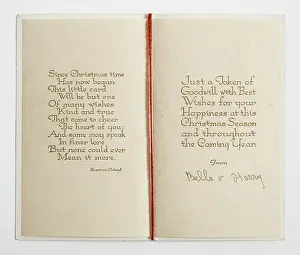 Since Christmas time
Has now began
This little card
Will be but one
Of many wishes
Kind and true
That come to cheer
The heart of you;
And some may speak
In finer lore
But none could ever
Mean it more.
Just a Token of
Goodwill with Best
Wishes for your
Happiness at this
Christmas Season
and throughout
the Coming Year
From
Bella & Harry